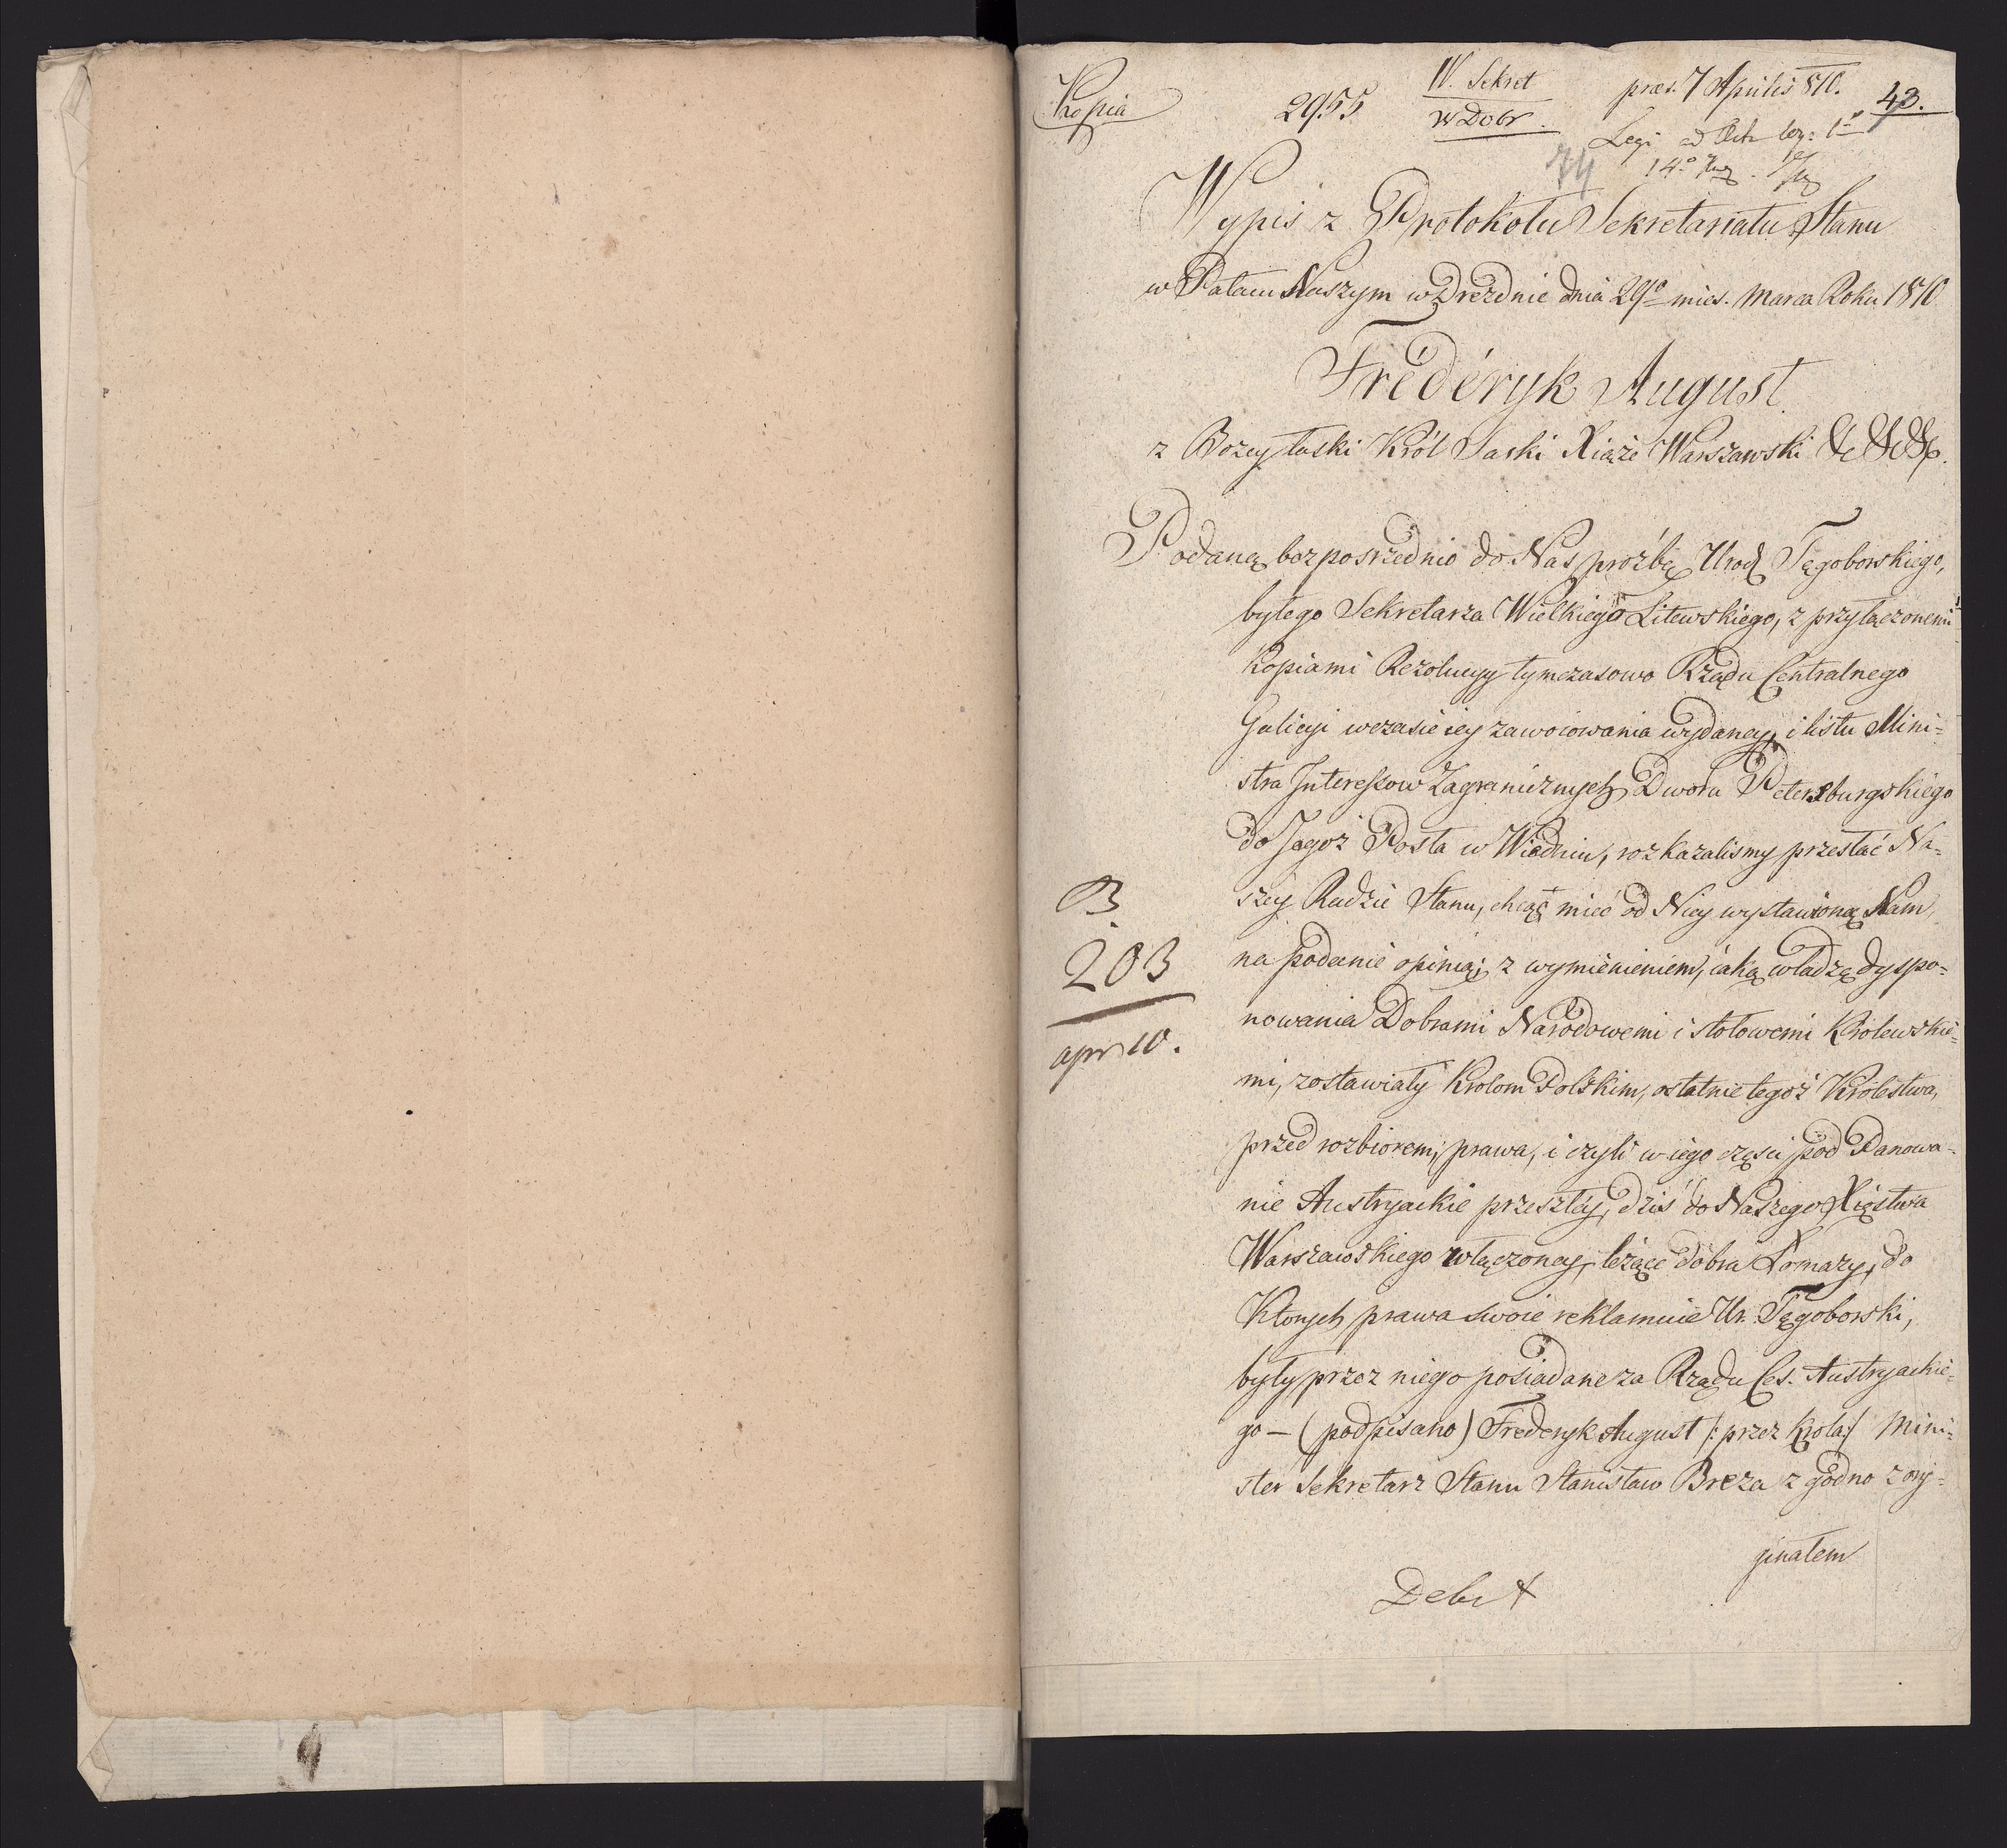 Kopia
2955
W. Sekret
W Dobr.
præs. 7 Aprilis 810.
43.
Legi ad
14.º
74
Wypis z Protokołu Sekretariatu Stanu
w Pałacu Naszym w Dreźnie dnia 29º mies. Marca Roku 1810
Fréderyk August
z Bożey łaski Król Saski Xiąże Warszawski &c &c &c.
Podaną bezposrzednio do Nas prozbę Urodz Tęgoborskiego,
byłego Sekretarza Wielkiego Litewskiego, z przyłączonemi
Kopiami Rezolucyy tymczasowo Rządu Centralnego
Galicyi wczasie iey zawoiowania wydaney, i listu Mini=
stra Interessow Zagranicznych Dworu Petersburgskiego
do Jegoż Posła w Wiedniu, rozkazalismy przesłać Na=
szey Radzie Stanu, chcąc mieć od Niey wystawioną Nam,
na podanie opinią; z wymienieniem, iaką władzę dyspo=
nowania Dobrami Narodowemi i stołowemi Krolewskie=
mi, zostawiały Krolom Polskim, ostatnie tegoż Królestwa,
przed rozbiorem, prawa, i czyli w iego części pod Panowa=
nie Austryackie przeszłéy, dziś do Naszego Xięstwa
Warszawskiego włączoney, leżące dobra Łomazy, do
Których prawa swoie reklamuie Ur. Tęgoborski,
były przez niego posiadane za Rządu Ces. Austryackie=
go — (podpisano) Frederyk August /: przez Krola :/ Mini=
ster Sekretarz Stanu Stanisław Breza zgodno z ory=
ginałem
B.
203
apr 10.